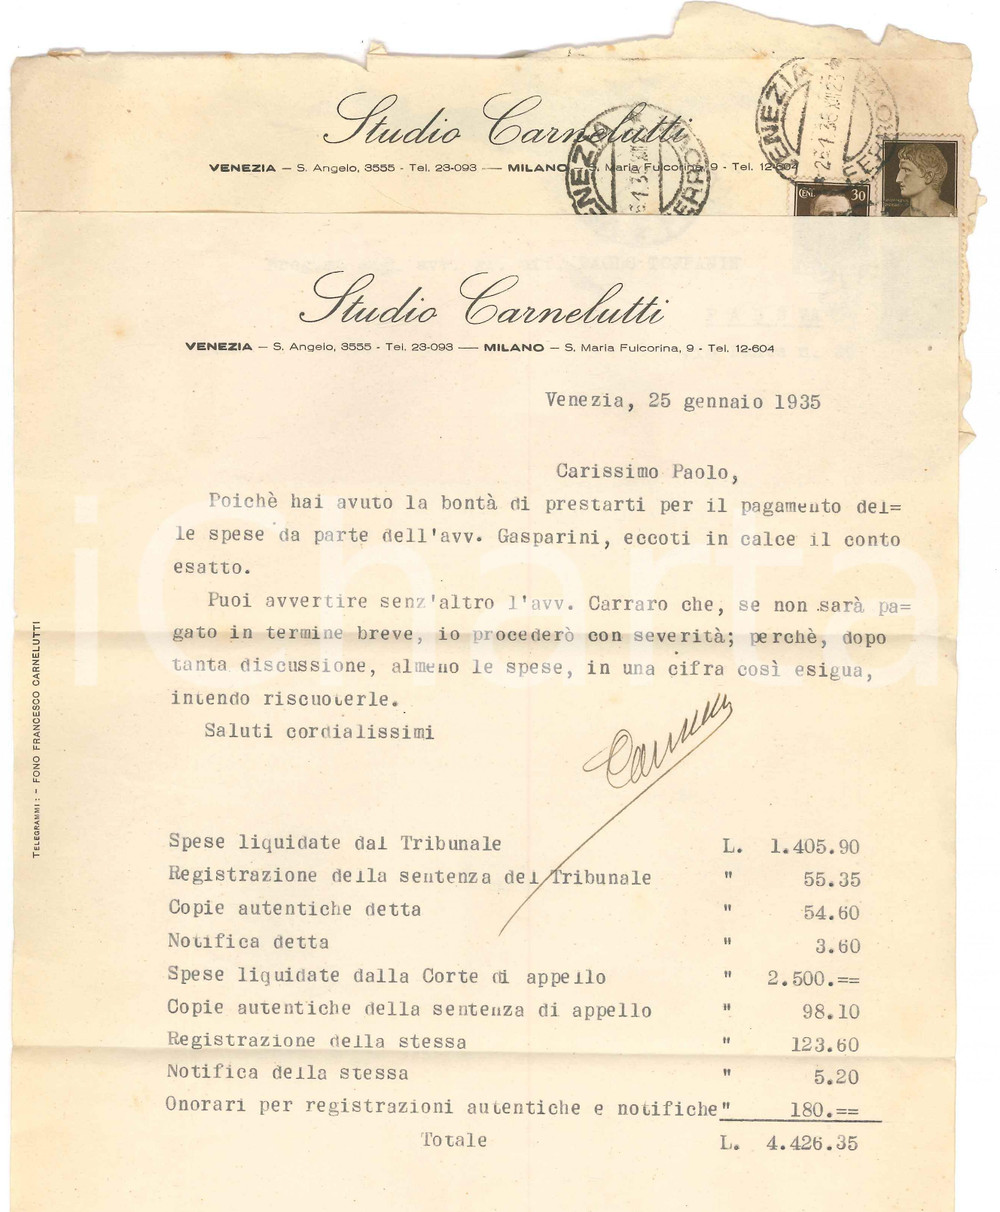 Studio Carnelutti
VENEZIA — S. Angelo, 3555 - Tel. 23-093 — MILANO — S. Maria Fulcorina, 9 - Tel. 12-604
VENEZIA
FERROVIA
VENEZIA
FERROVIA
CENT. 30
Studio Carnelutti
VENEZIA — S. Angelo, 3555 - Tel. 23-093 — MILANO — S. Maria Fulcorina, 9 - Tel. 12-604
Venezia, 25 gennaio 1935
Carissimo Paolo,
Poichè hai avuto la bontà di prestarti per il pagamento del=
le spese da parte dell'avv. Gasparini, eccoti in calce il conto
esatto.
Puoi avvertire senz'altro l'avv. Carraro che, se non sarà pa=
gato in termine breve, io procederò con severità; perchè, dopo
tanta discussione, almeno le spese, in una cifra così esigua,
intendo riscuoterle.
Saluti cordialissimi
TELEGRAMMI: - FONO FRANCESCO CARNELUTTI
Spese liquidate dal Tribunale L. 1.405.90
Registrazione della sentenza del Tribunale " 55.35
Copie autentiche detta " 54.60
Notifica detta " 3.60
Spese liquidate dalla Corte di appello " 2.500.==
Copie autentiche della sentenza di appello " 98.10
Registrazione della stessa " 123.60
Notifica della stessa " 5.20
Onorari per registrazioni autentiche e notifiche" 180.==
Totale L. 4.426.35
iCharta